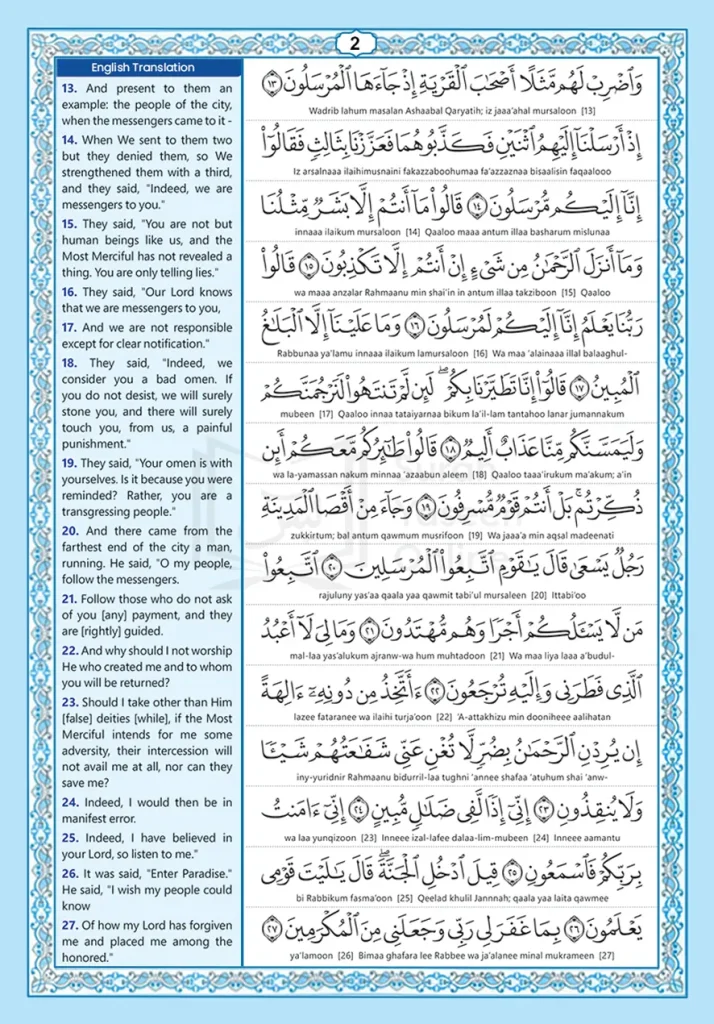 2
English Translation
13. And present to them an
example: the people of the city,
when the messengers came to it -
14. When We sent to them two
but they denied them, so We
strengthened them with a third,
and they said, "Indeed, we are
messengers to you."
15. They said, "You are not but
human beings like us, and the
Most Merciful has not revealed a
thing. You are only telling lies."
16. They said, "Our Lord knows
that we are messengers to you,
17. And we are not responsible
except for clear notification."
18. They said, "Indeed, we
consider you a bad omen. If
you do not desist, we will surely
stone you, and there will surely
touch you, from us, a painful
punishment."
19. They said, "Your omen is with
yourselves. Is it because you were
reminded? Rather, you are a
transgressing people."
20. And there came from the
farthest end of the city a man,
running. He said, "O my people,
follow the messengers.
21. Follow those who do not ask
of you [any] payment, and they
are [rightly] guided.
22. And why should I not worship
He who created me and to whom
you will be returned?
23. Should I take other than Him
[false] deities [while], if the Most
Merciful intends for me some
adversity, their intercession will
not avail me at all, nor can they
save me?
24. Indeed, I would then be in
manifest error.
25. Indeed, I have believed in
your Lord, so listen to me."
26. It was said, "Enter Paradise."
He said, "I wish my people could
know
27. Of how my Lord has forgiven
me and placed me among the
honored."
وَٱضْرِبْ لَهُم مَّثَلًا أَصْحَٰبَ ٱلْقَرْيَةِ إِذْ جَآءَهَا ٱلْمُرْسَلُونَ ١٣
Wadrib lahum masalan Ashaabal Qaryatih; iz jaaa'ahal mursaloon [13]
إِذْ أَرْسَلْنَآ إِلَيْهِمُ ٱثْنَيْنِ فَكَذَّبُوهُمَا فَعَزَّزْنَا بِثَالِثٍ فَقَالُوٓا۟
Iz arsalnaaa ilaihimusnaini fakazzaboohumaa fa'azzaznaa bisaalisin faqaalooo
إِنَّآ إِلَيْكُم مُّرْسَلُونَ ١٤ قَالُوا۟ مَآ أَنتُمْ إِلَّا بَشَرٌ مِّثْلُنَا
innaaa ilaikum mursaloon [14] Qaaloo maaa antum illaa basharum mislunaa
وَمَآ أَنزَلَ ٱلرَّحْمَٰنُ مِن شَىْءٍ إِنْ أَنتُمْ إِلَّا تَكْذِبُونَ ١٥ قَالُوا۟
wa maaa anzalar Rahmaanu min shai'in in antum illaa takziboon [15] Qaaloo
رَبُّنَا يَعْلَمُ إِنَّآ إِلَيْكُمْ لَمُرْسَلُونَ ١٦ وَمَا عَلَيْنَآ إِلَّا ٱلْبَلَٰغُ
Rabbunaa ya'lamu innaaa ilaikum lamursaloon [16] Wa maa 'alainaaa illal balaaghul-
ٱلْمُبِينُ ١٧ قَالُوٓا۟ إِنَّا تَطَيَّرْنَا بِكُمْ ۖ لَئِن لَّمْ تَنتَهُوا۟ لَنَرْجُمَنَّكُمْ
mubeen [17] Qaaloo innaa tataiyarnaa bikum la'il-lam tantahoo lanar jumannakum
وَلَيَمَسَّنَّكُم مِّنَّا عَذَابٌ أَلِيمٌ ١٨ قَالُوا۟ طَٰٓئِرُكُم مَّعَكُمْ أَئِن
wa la-yamassan nakum minnaa 'azaabun aleem [18] Qaaloo taaa'irukum ma'akum; a'in
ذُكِّرْتُم ۚ بَلْ أَنتُمْ قَوْمٌ مُّسْرِفُونَ ١٩ وَجَآءَ مِنْ أَقْصَا ٱلْمَدِينَةِ
zukkirtum; bal antum qawmum musrifoon [19] Wa jaaa'a min aqsal madeenati
رَجُلٌ يَسْعَىٰ قَالَ يَٰقَوْمِ ٱتَّبِعُوا۟ ٱلْمُرْسَلِينَ ٢٠ ٱتَّبِعُوا۟
rajuluny yas'aa qaala yaa qawmit tabi'ul mursaleen [20] Ittabi'oo
مَن لَّا يَسْـَٔلُكُمْ أَجْرًا وَهُم مُّهْتَدُونَ ٢١ وَمَا لِىَ لَآ أَعْبُدُ
mal-laa yas'alukum ajranw-wa hum muhtadoon [21] Wa maa liya laaa a'budul-
ٱلَّذِى فَطَرَنِى وَإِلَيْهِ تُرْجَعُونَ ٢٢ ءَأَتَّخِذُ مِن دُونِهِۦٓ ءَالِهَةً
lazee fataranee wa ilaihi turja'oon [22] 'A-attakhizu min dooniheee aalihatan
إِن يُرِدْنِ ٱلرَّحْمَٰنُ بِضُرٍّ لَّا تُغْنِ عَنِّى شَفَٰعَتُهُمْ شَيْـًٔا
iny-yuridnir Rahmaanu bidurril-laa tughni 'annee shafaa 'atuhum shai 'anw-
وَلَا يُنقِذُونِ ٢٣ إِنِّىٓ إِذًا لَّفِى ضَلَٰلٍ مُّبِينٍ ٢٤ إِنِّىٓ ءَامَنتُ
wa laa yunqizoon [23] Inneee izal-lafee dalaa-lim-mubeen [24] Inneee aamantu
بِرَبِّكُمْ فَٱسْمَعُونِ ٢٥ قِيلَ ٱدْخُلِ ٱلْجَنَّةَ ۖ قَالَ يَٰلَيْتَ قَوْمِى
bi Rabbikum fasma'oon [25] Qeelad khulil Jannnah; qaala yaa laita qawmee
يَعْلَمُونَ ٢٦ بِمَا غَفَرَ لِى رَبِّى وَجَعَلَنِى مِنَ ٱلْمُكْرَمِينَ ٢٧
ya'lamoon [26] Bimaa ghafara lee Rabbee wa ja'alanee minal mukrameen [27]